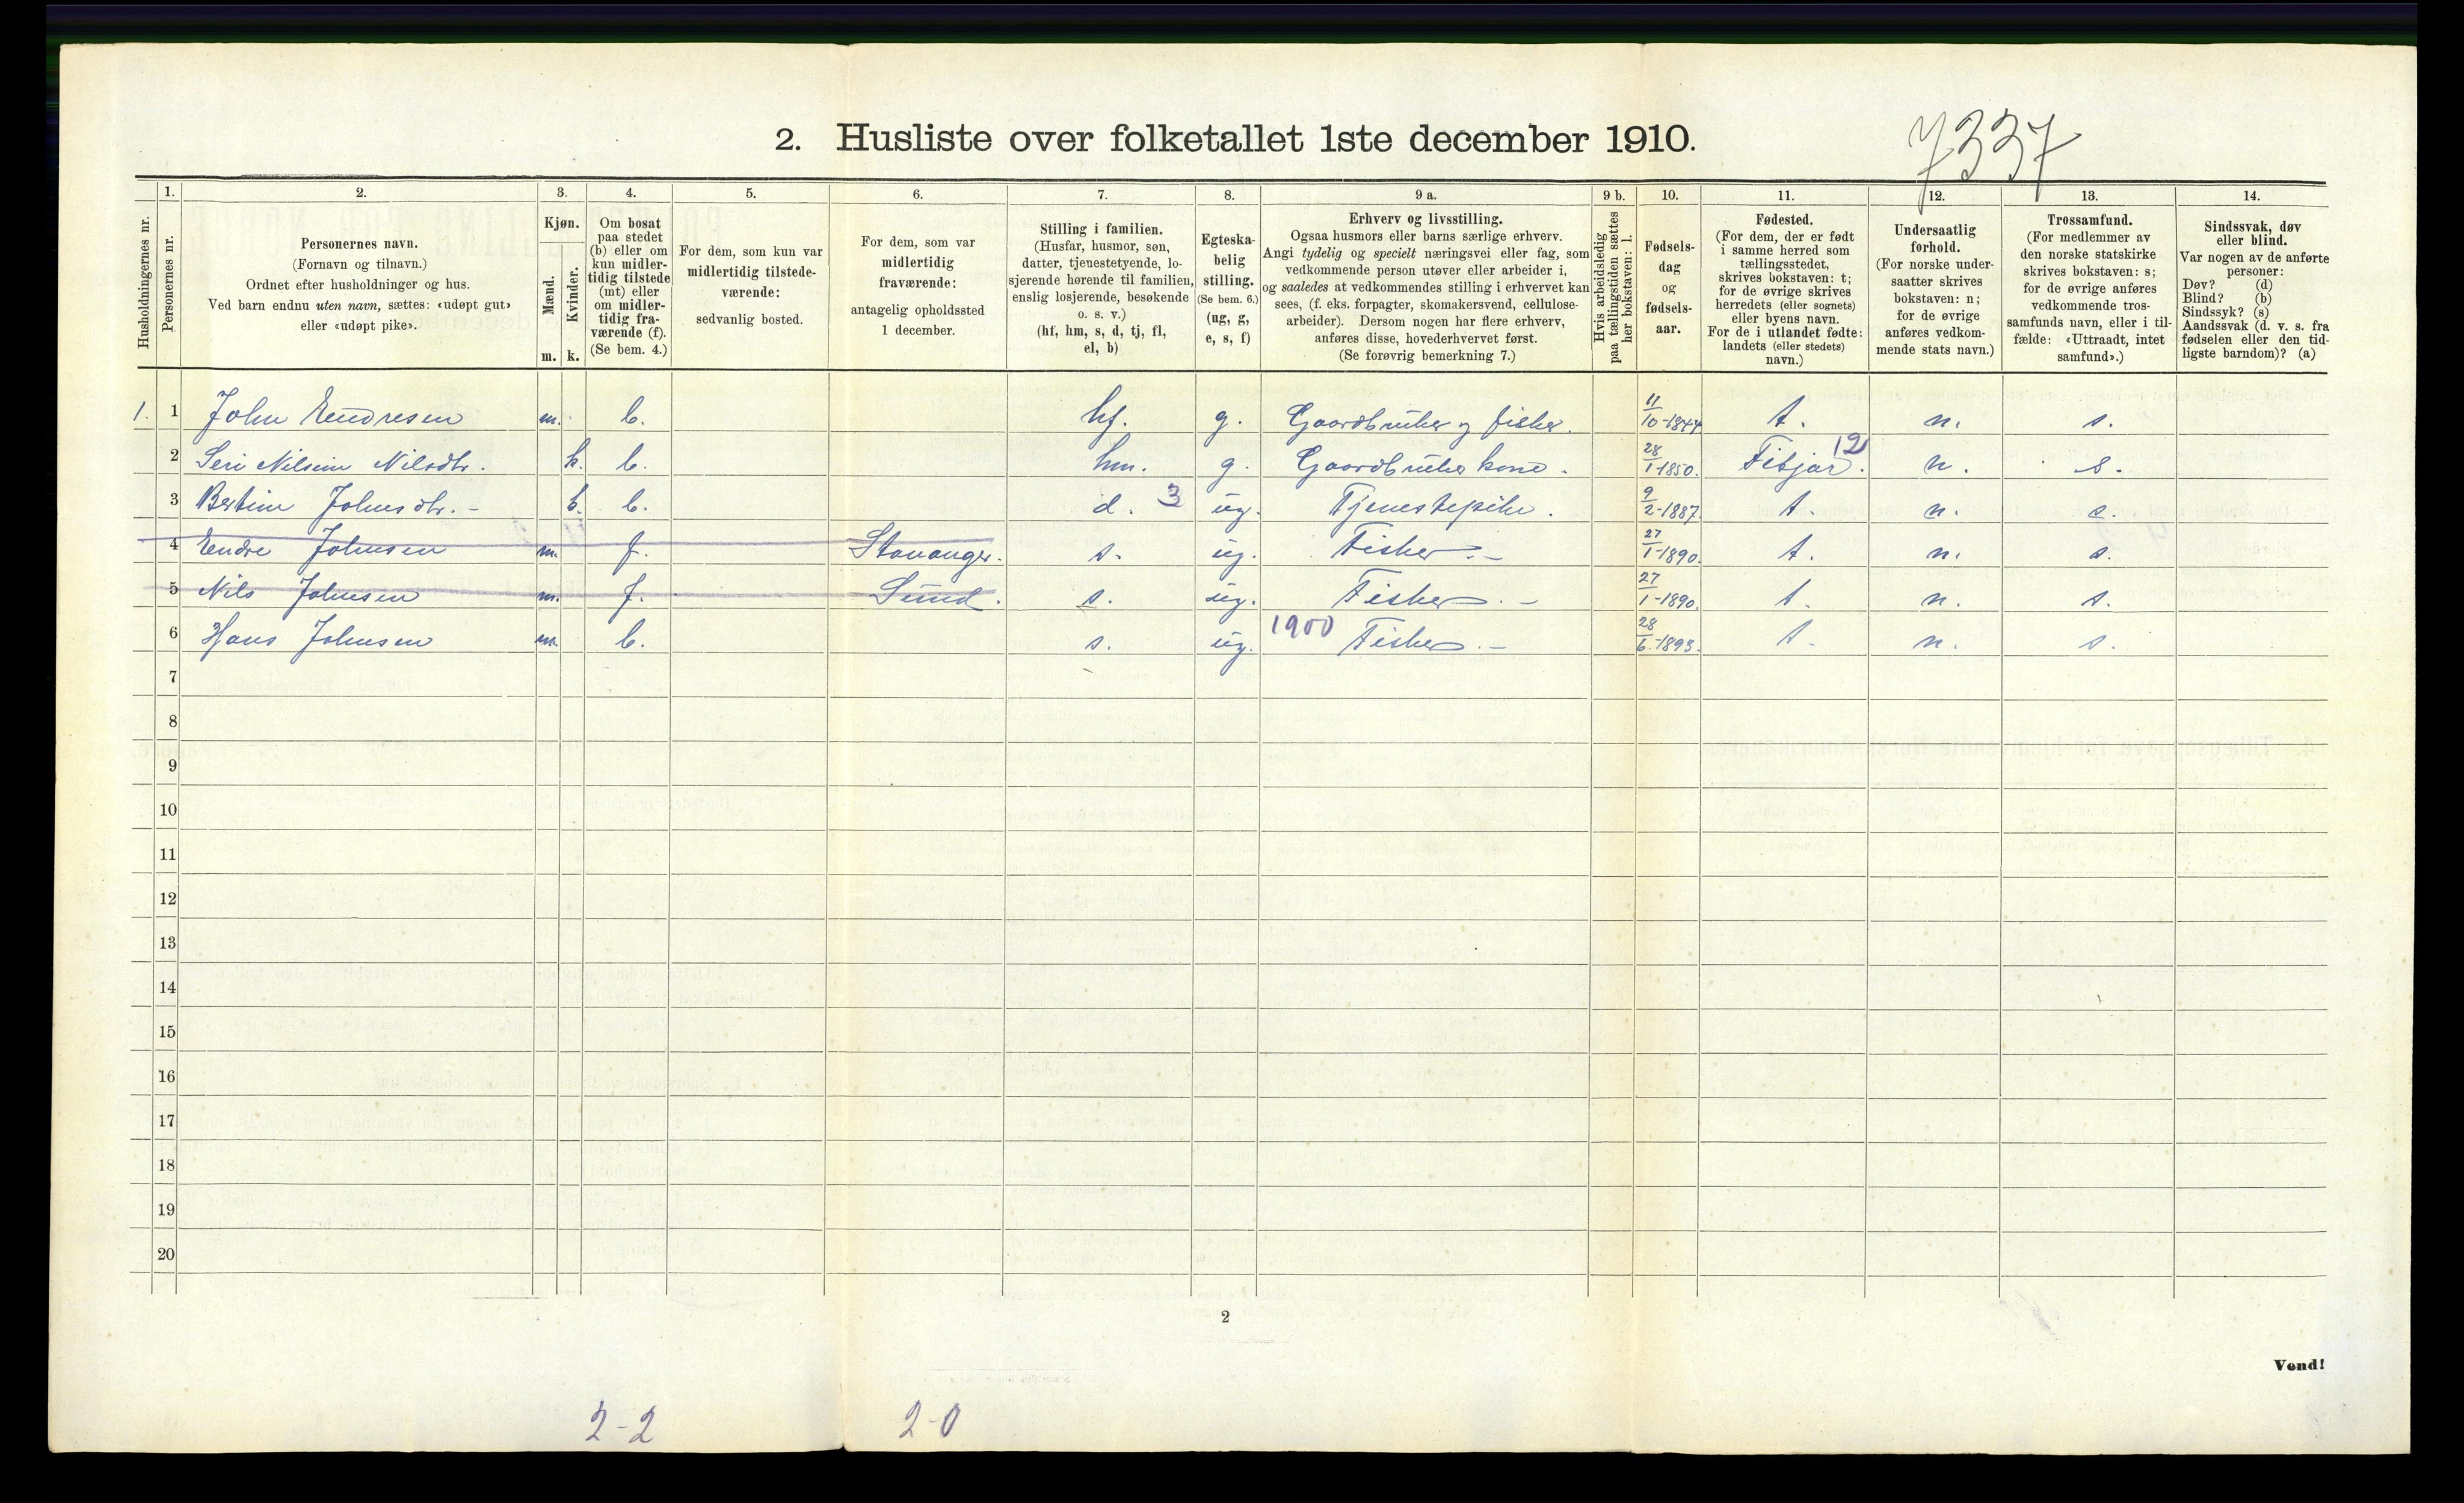 7337
2. Husliste over folketallet 1ste december 1910.
Husholdningernes nr.
1.
Personernes nr.
2.
Personernes navn.
(Fornavn og tilnavn.)
Ordnet efter husholdninger og hus.
Ved barn endnu uten navn, sættes: «udøpt gut»
eller «udøpt pike».
3.
Kjøn.
Mænd.
Kvinder.
m. k.
4.
Om bosat
paa stedet
(b) eller om
kun midler-
tidig tilstede
(mt) eller
om midler-
tidig fra-
værende (f).
(Se bem. 4.)
5.
For dem, som kun var
midlertidig tilstede-
værende:
sedvanlig bosted.
6.
For dem, som var
midlertidig
fraværende:
antagelig opholdssted
1 december.
7.
Stilling i familien.
(Husfar, husmor, søn,
datter, tjenestetyende, lo-
sjerende hørende til familien,
enslig losjerende, besøkende
o. s. v.)
(hf, hm, s, d, tj, fl,
el, b)
8.
Egteska-
belig
stilling.
(Se bem. 6.)
(ug, g,
e, s, f)
9 a.
Erhverv og livsstilling.
Ogsaa husmors eller barns særlige erhverv.
Angi tydelig og specielt næringsvei eller fag, som
vedkommende person utøver eller arbeider i,
og saaledes at vedkommendes stilling i erhvervet kan
sees, (f. eks. forpagter, skomakersvend, cellulose-
arbeider). Dersom nogen har flere erhverv,
anføres disse, hovederhvervet først.
(Se forøvrig bemerkning 7.)
9 b.
Hvis arbeidsledig
paa tællingstiden sættes
her bokstaven: l.
10.
Fødsels-
dag
og
fødsels-
aar.
11.
Fødested.
(For dem, der er født
i samme herred som
tællingsstedet,
skrives bokstaven: t;
for de øvrige skrives
herredets (eller sognets)
eller byens navn.
For de i utlandet fødte:
landets (eller stedets)
navn.)
12.
Undersaatlig
forhold.
(For norske under-
saatter skrives
bokstaven: n;
for de øvrige
anføres vedkom-
mende stats navn.)
13.
Trossamfund.
(For medlemmer av
den norske statskirke
skrives bokstaven: s;
for de øvrige anføres
vedkommende tros-
samfunds navn, eller i til-
fælde: «Uttraadt, intet
samfund».)
14.
Sindssvak, døv
eller blind.
Var nogen av de anførte
personer:
Døv? (d)
Blind? (b)
Sindssyk? (s)
Aandssvak (d. v. s. fra
fødselen eller den tid-
ligste barndom)? (a)
1. 1 John Endresen m. b. hf. g. Gaardbruker og fisker. 11/10-1844 t. n. s.
2 Seri Nilsine Nilsdtr. k. b. hm. g. Gaardbruker kone. 28/1-1850. Fitjar. 12 n. s.
3 Bertine Johnsdtr. - k. b. d. 3 ug. Tjenestepike. 9/2-1887. t. n. s.
4 Endre Johnsen m. f. Stavanger. s. ug. Fisker. - 27/1-1890. t. n. s.
5 Nils Johnsen m. f. Sund. s. ug. Fisker. - 27/1-1890. t. n. s.
6 Hans Johnsen m. b. s. ug. 1900 Fisker. - 28/6-1893. t. n. s.
7
8
9
10
11
12
13
14
15
16
17
18
19
20
2
Vend!
2-2 2-0